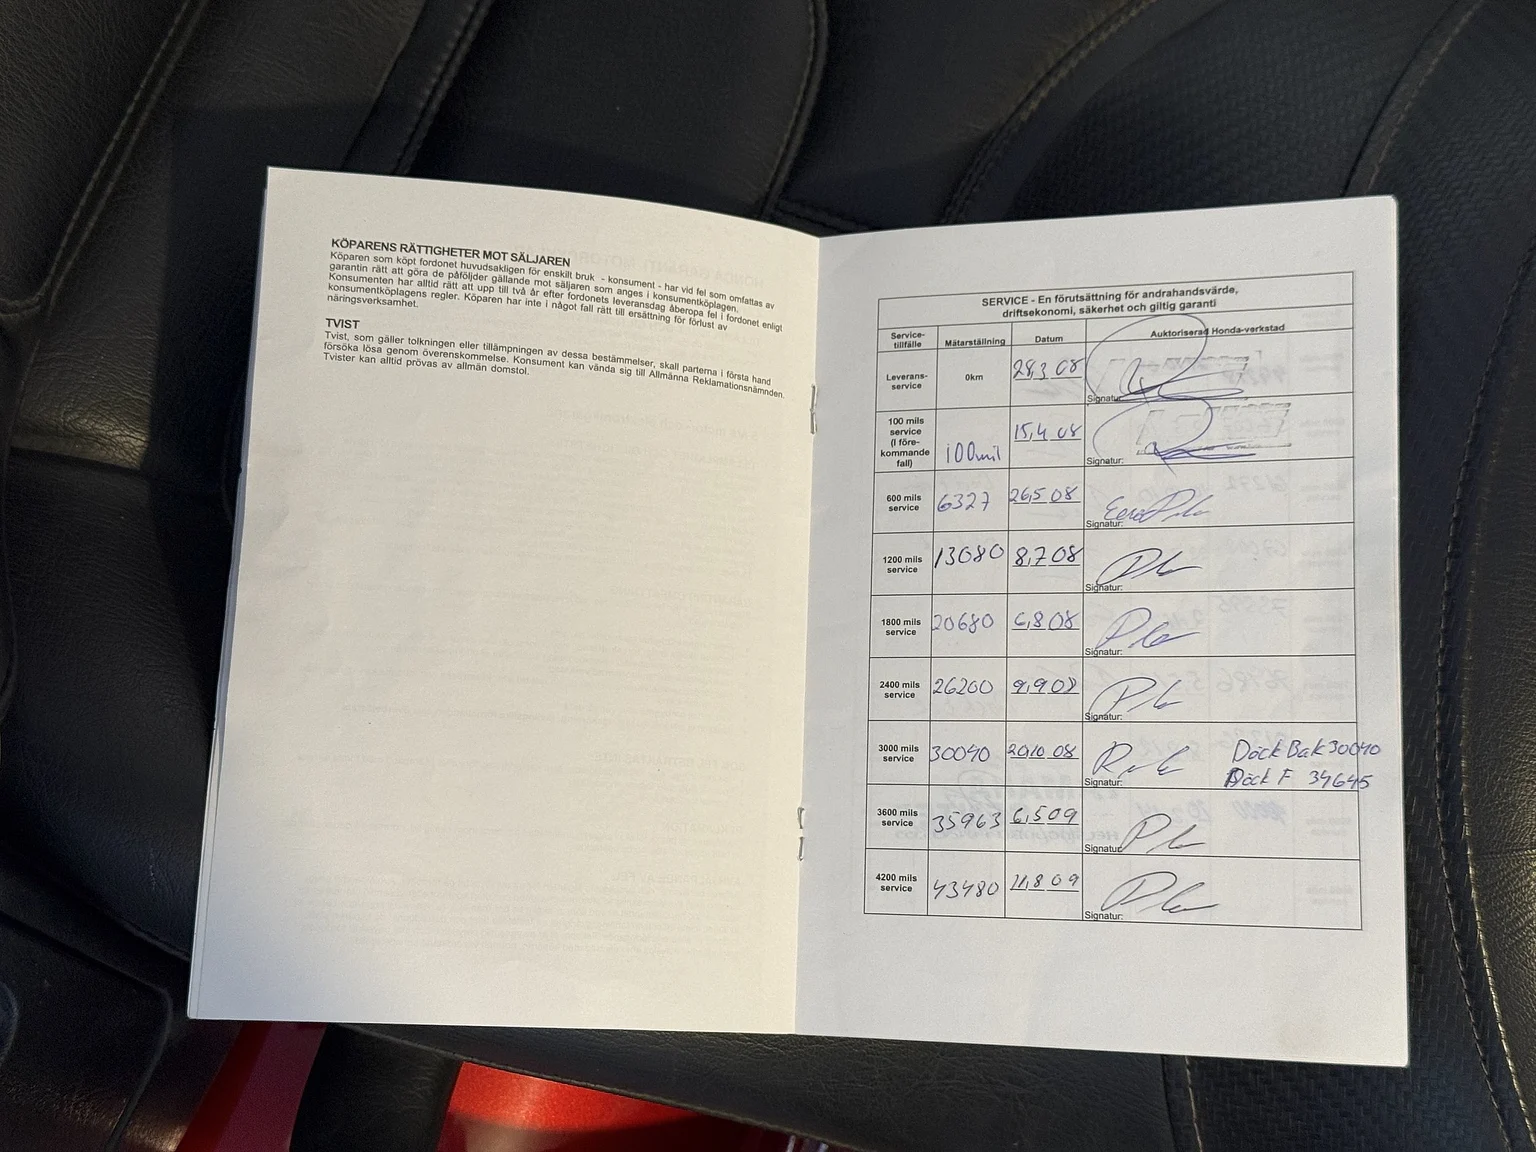 KÖPARENS RÄTTIGHETER MOT SÄLJAREN
Köparen som köpt fordonet huvudsakligen för enskilt bruk - konsument - har vid fel som omfattas av
garantin rätt att göra de påföljder gällande mot säljaren som anges i konsumentköplagen.
Konsumenten har alltid rätt att upp till två år efter fordonets leveransdag åberopa fel i fordonet enligt
konsumentköplagens regler. Köparen har inte i något fall rätt till ersättning för förlust av
näringsverksamhet.
TVIST
Tvist, som gäller tolkningen eller tillämpningen av dessa bestämmelser, skall parterna i första hand
försöka lösa genom överenskommelse. Konsument kan vända sig till Allmänna Reklamationsnämnden.
Tvister kan alltid prövas av allmän domstol.
SERVICE - En förutsättning för andrahandsvärde,
driftsekonomi, säkerhet och giltig garanti
Service-
tillfälle Mätarställning Datum Auktoriserad Honda-verkstad
Leverans-
service 0km 28,3 08 Signatur:
100 mils
service
(I före-
kommande
fall) 100mil 15,4 08 Signatur:
600 mils
service 6327 26,5 08 Signatur:
1200 mils
service 13080 8,7 08 Signatur:
1800 mils
service 20680 6,8 08 Signatur:
2400 mils
service 26200 9,9 08 Signatur:
3000 mils
service 30040 20,10 08 Signatur: Däck Bak 30040
Däck F 34645
3600 mils
service 35963 6,5 09 Signatur:
4200 mils
service 43480 11,8 09 Signatur: